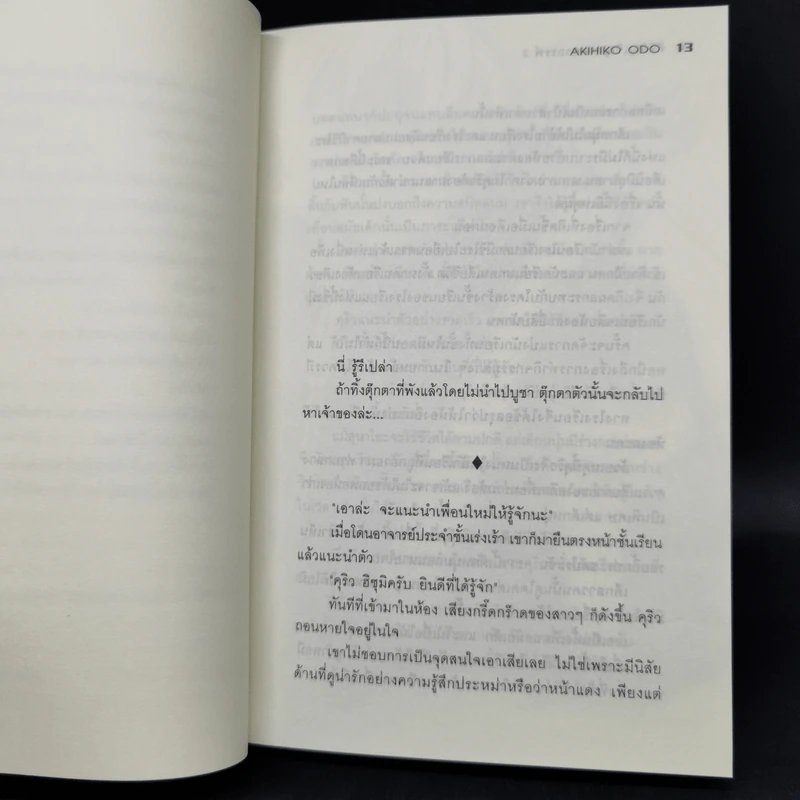 AKIHIKO ODO 13
นี่ รู้รึเปล่า
ถ้าทิ้งตุ๊กตาที่พังแล้วโดยไม่นำไปบูชา ตุ๊กตาตัวนั้นจะกลับไป
หาเจ้าของล่ะ...
"เอาล่ะ จะแนะนำเพื่อนใหม่ให้รู้จักนะ"
เมื่อโดนอาจารย์ประจำชั้นเร่งเร้า เขาก็มายืนตรงหน้าชั้นเรียน
แล้วแนะนำตัว
"คุริว ฮิซุมิครับ ยินดีที่ได้รู้จัก"
ทันทีที่เข้ามาในห้อง เสียงกรี๊ดกร๊าดของสาวๆ ก็ดังขึ้น คุริว
ถอนหายใจอยู่ในใจ
เขาไม่ชอบการเป็นจุดสนใจเอาเสียเลย ไม่ใช่เพราะมีนิสัย
ด้านที่ดูน่ารักอย่างความรู้สึกประหม่าหรือว่าหน้าแดง เพียงแต่